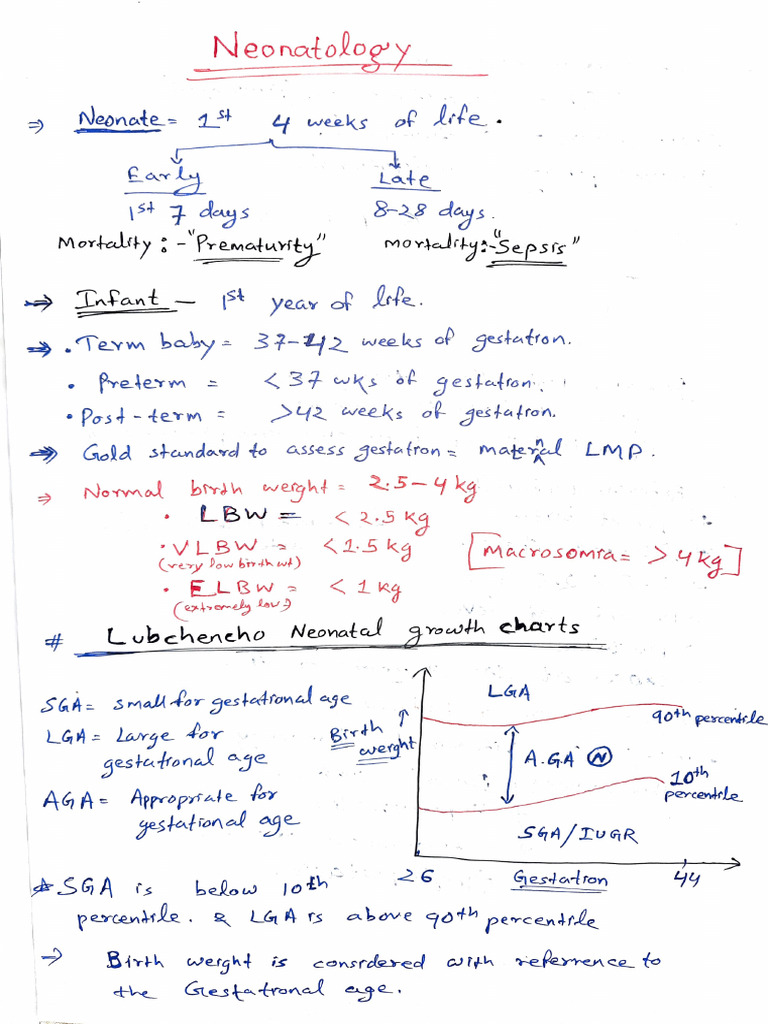 Neonatology
⇒ Neonate = 1st 4 weeks of life.
Early Late
1st 7 days 8-28 days.
Mortality:- "Prematurity" mortality:- "Sepsis"
⇒ Infant – 1st year of life.
⇒ • Term baby = 37-42 weeks of gestation.
• Preterm = <37 wks of gestation.
• Post-term = >42 weeks of gestation.
⇒ Gold standard to assess gestation = maternal LMP.
⇒ Normal birth weight = 2.5-4 kg
• LBW = <2.5 kg
• VLBW = <1.5 kg [Macrosomia = > 4 kg]
(very low birth wt)
• ELBW = < 1 kg
(extremely low)
# Lubchencho Neonatal growth charts
SGA = small for gestational age
LGA = Large for
gestational age
AGA = Appropriate for
gestational age
Birth ↑
weight
LGA
90th percentile
A.G.A (N)
10th
percentile
SGA/IUGR
26 Gestation 44
* SGA is below 10th
percentile. & LGA is above 90th percentile
→ Birth weight is considered with referrence to
the Gestational age.